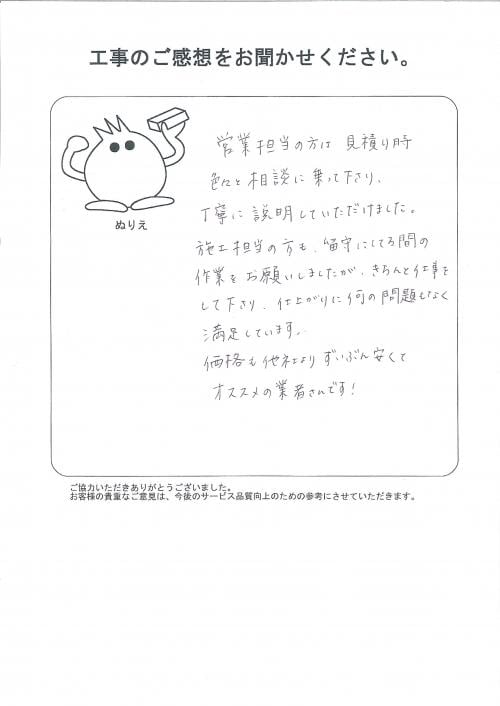 工事のご感想をお聞かせください。
ぬりえ
営業担当の方は 見積り時
色々と相談に乗って下り、
丁寧に説明していただけました。
施工担当の方も、留守にしてる間の
作業をお願いしましたが、きちんと仕事を
して下り、仕上がりに何の問題もなく
満足しています。
価格も他社より ずいぶん安くて
オススメの業者さんです!
ご協力いただきありがとうございました。
お客様の貴重なご意見は、今後のサービス品質向上のための参考にさせていただきます。